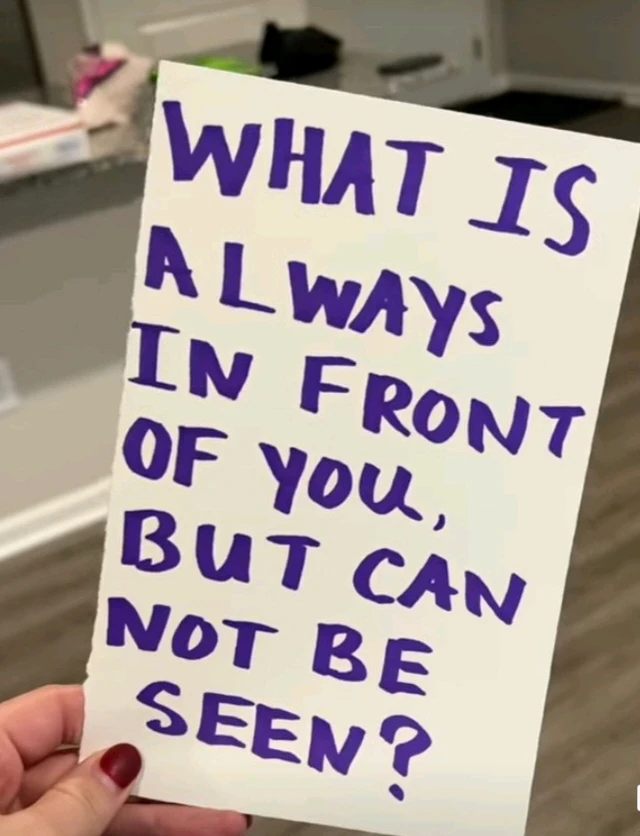 WHAT IS
ALWAYS
IN FRONT
OF YOU,
BUT CAN
NOT BE
SEEN?